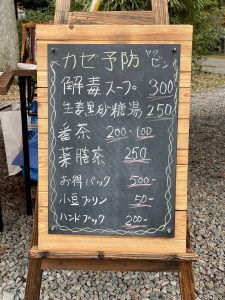 カゼ予防
解毒スープ 300
生姜黒砂糖湯 250
番茶 200・100
薬膳茶 250
お得パック 500-
小豆プリン 50-
ハンドブック 200-